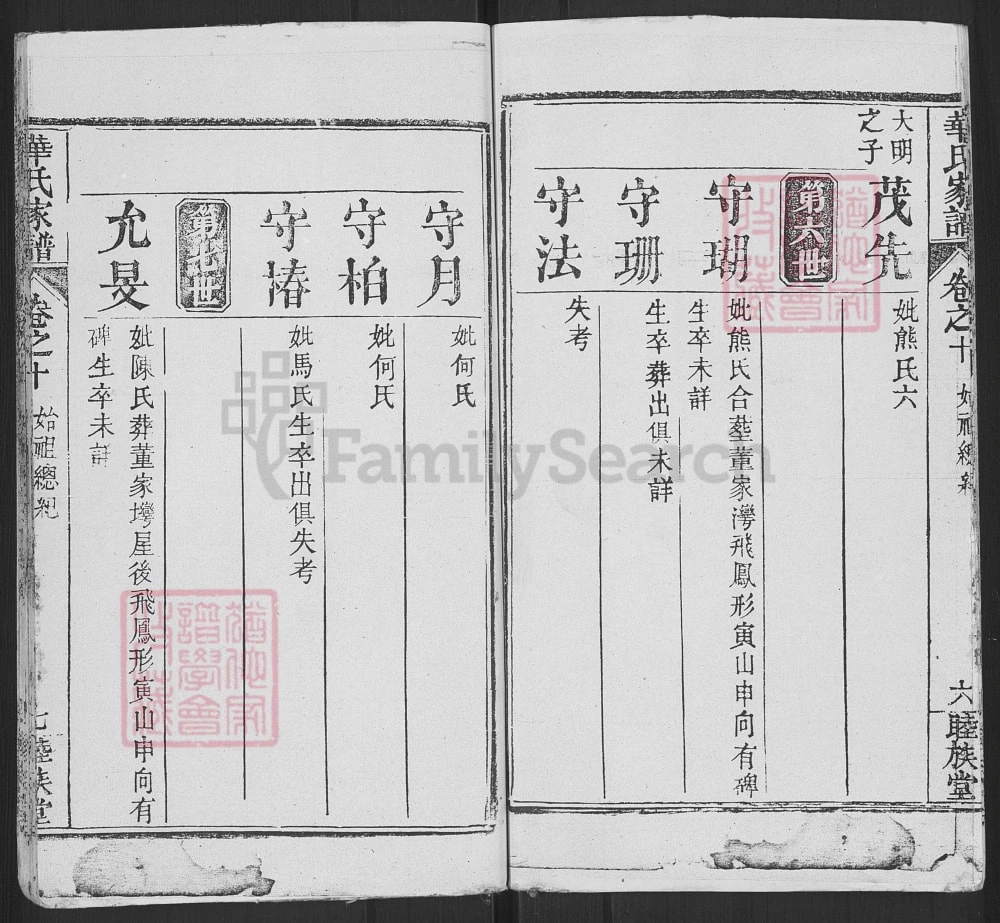 華氏家譜
卷之十
始祖總紀
六
睦族堂
大明
之子
茂先
妣熊氏六
第六世
守瑚
妣熊氏合塟董家灣飛鳳形寅山申向有碑
生卒未詳
守珊
生卒葬出俱未詳
守法
失考
守月
妣何氏
守柏
妣何氏
守椿
妣馬氏生卒出俱失考
第七世
允旻
妣陳氏葬董家塆屋後飛鳳形寅山申向有
碑生卒未詳
華氏家譜
卷之十
始祖總紀
七
睦族堂
FamilySearch